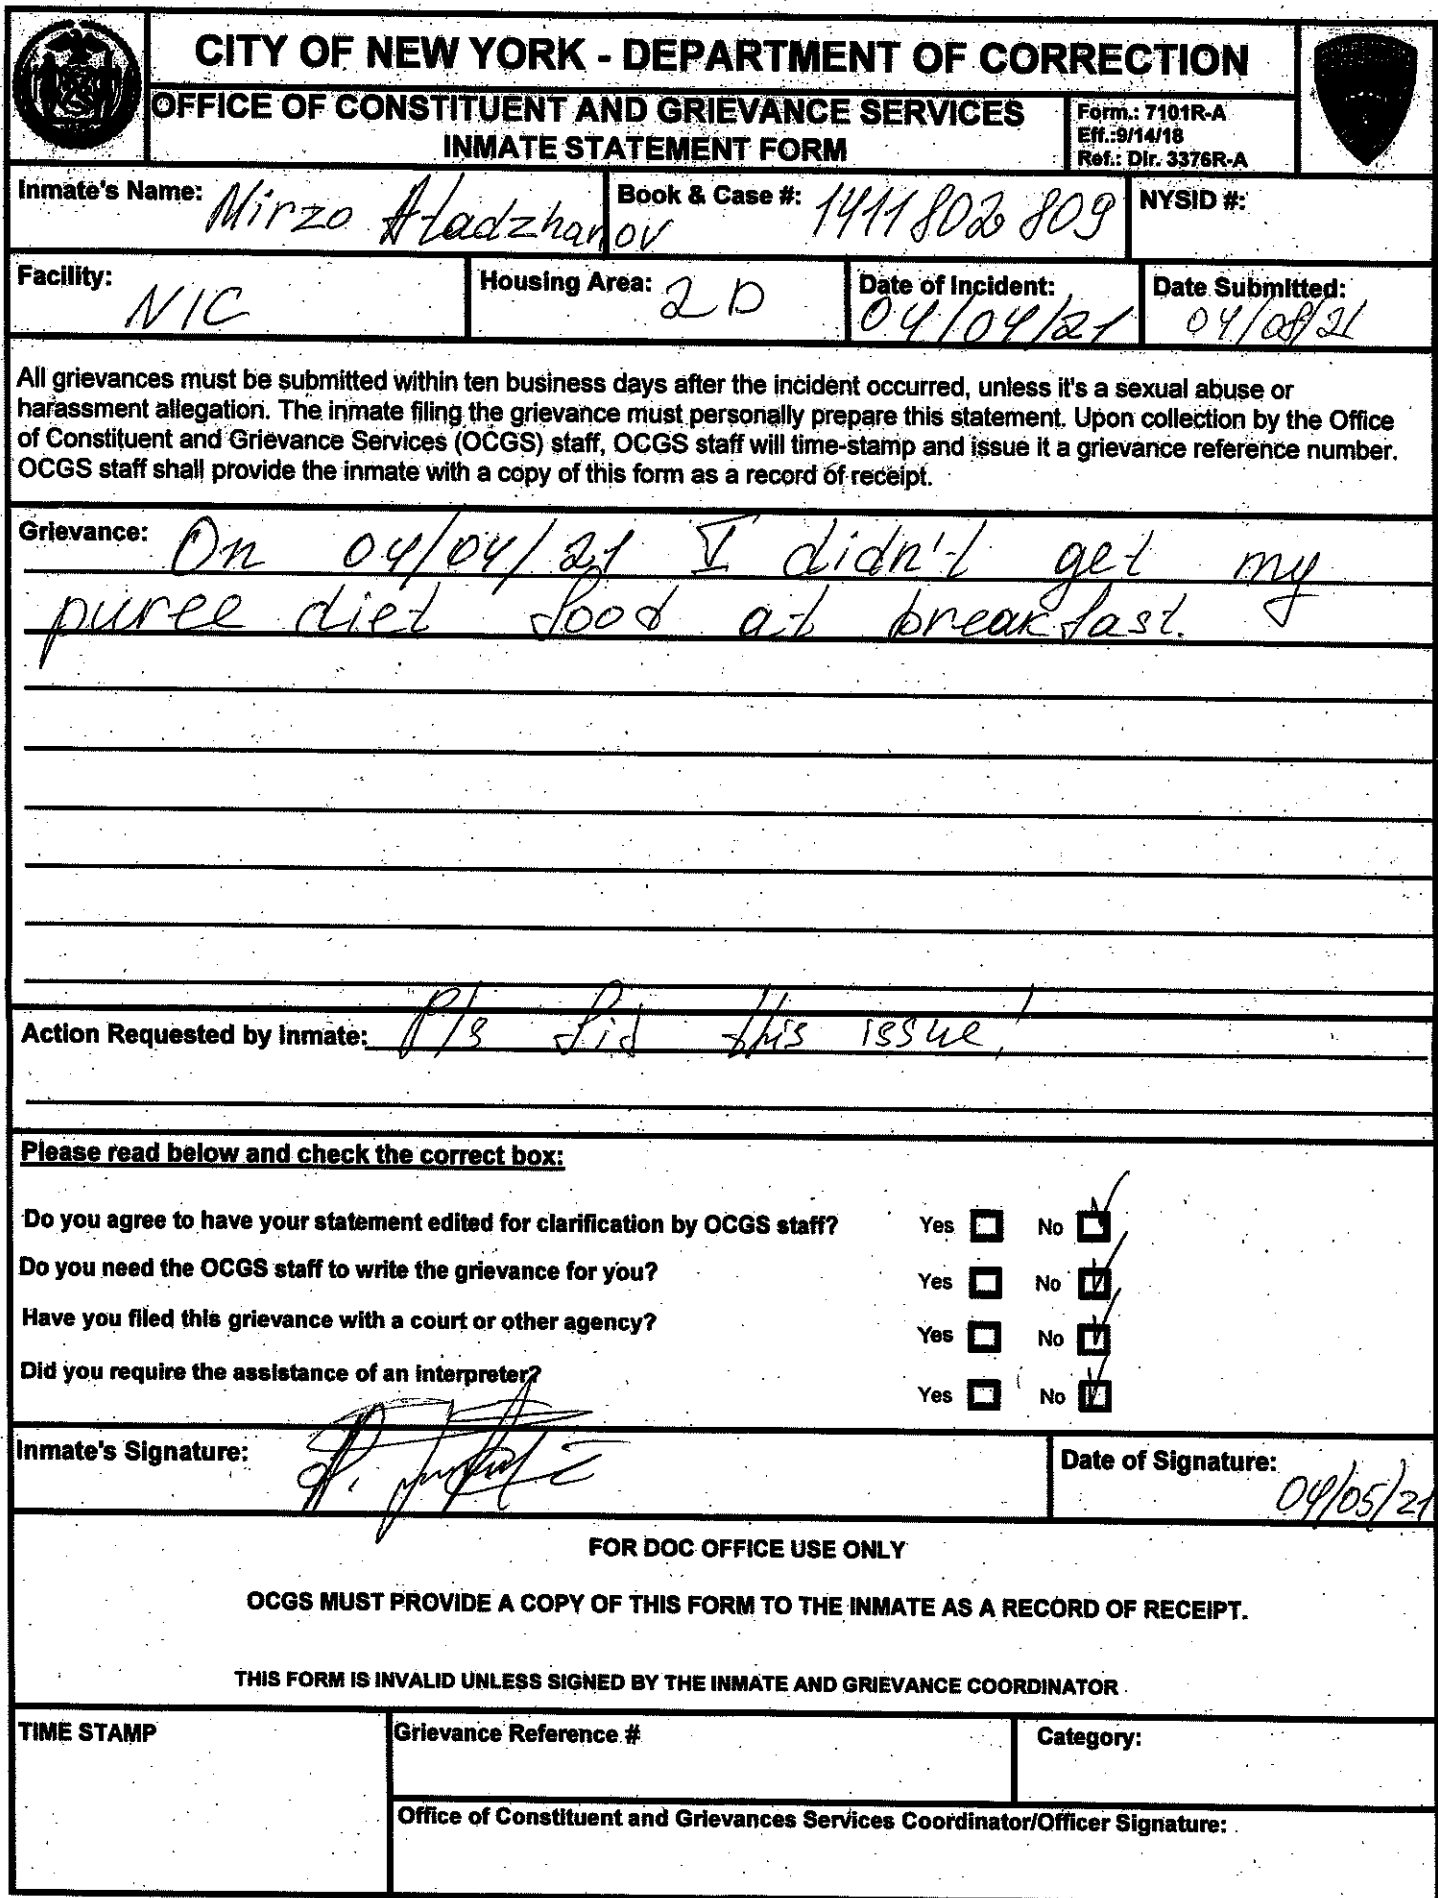 CITY OF NEW YORK - DEPARTMENT OF CORRECTION
OFFICE OF CONSTITUENT AND GRIEVANCE SERVICES
INMATE STATEMENT FORM
Form.: 7101R-A
Eff.:9/14/18
Ref.: Dir. 3376R-A
Inmate's Name: Mirzo Atadzhanov
Book & Case #: 1411802809
NYSID #:
Facility: NIC
Housing Area: 2D
Date of Incident: 04/04/21
Date Submitted: 04/08/21
All grievances must be submitted within ten business days after the incident occurred, unless it's a sexual abuse or
harassment allegation. The inmate filing the grievance must personally prepare this statement. Upon collection by the Office
of Constituent and Grievance Services (OCGS) staff, OCGS staff will time-stamp and issue it a grievance reference number.
OCGS staff shall provide the inmate with a copy of this form as a record of receipt.
Grievance: On 04/04/21 I didn't get my
puree diet food at breakfast.
Action Requested by Inmate: Pls this issue!
Please read below and check the correct box:
Do you agree to have your statement edited for clarification by OCGS staff? Yes No
Do you need the OCGS staff to write the grievance for you? Yes No
Have you filed this grievance with a court or other agency? Yes No
Did you require the assistance of an interpreter? Yes No
Inmate's Signature:
Date of Signature: 04/05/21
FOR DOC OFFICE USE ONLY
OCGS MUST PROVIDE A COPY OF THIS FORM TO THE INMATE AS A RECORD OF RECEIPT.
THIS FORM IS INVALID UNLESS SIGNED BY THE INMATE AND GRIEVANCE COORDINATOR
TIME STAMP
Grievance Reference #
Category:
Office of Constituent and Grievances Services Coordinator/Officer Signature: